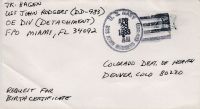 JR. HAGEN
USS JOHN RODGERS (DD-983)
OE DIV (DETACHMENT)
FPO MIAMI, FL 34092
U.S. NAVY
COLORADO DEPT. OF HEALTH
DENVER, COLO 80220
REQUEST FOR
BIRTH CERTIFICATE